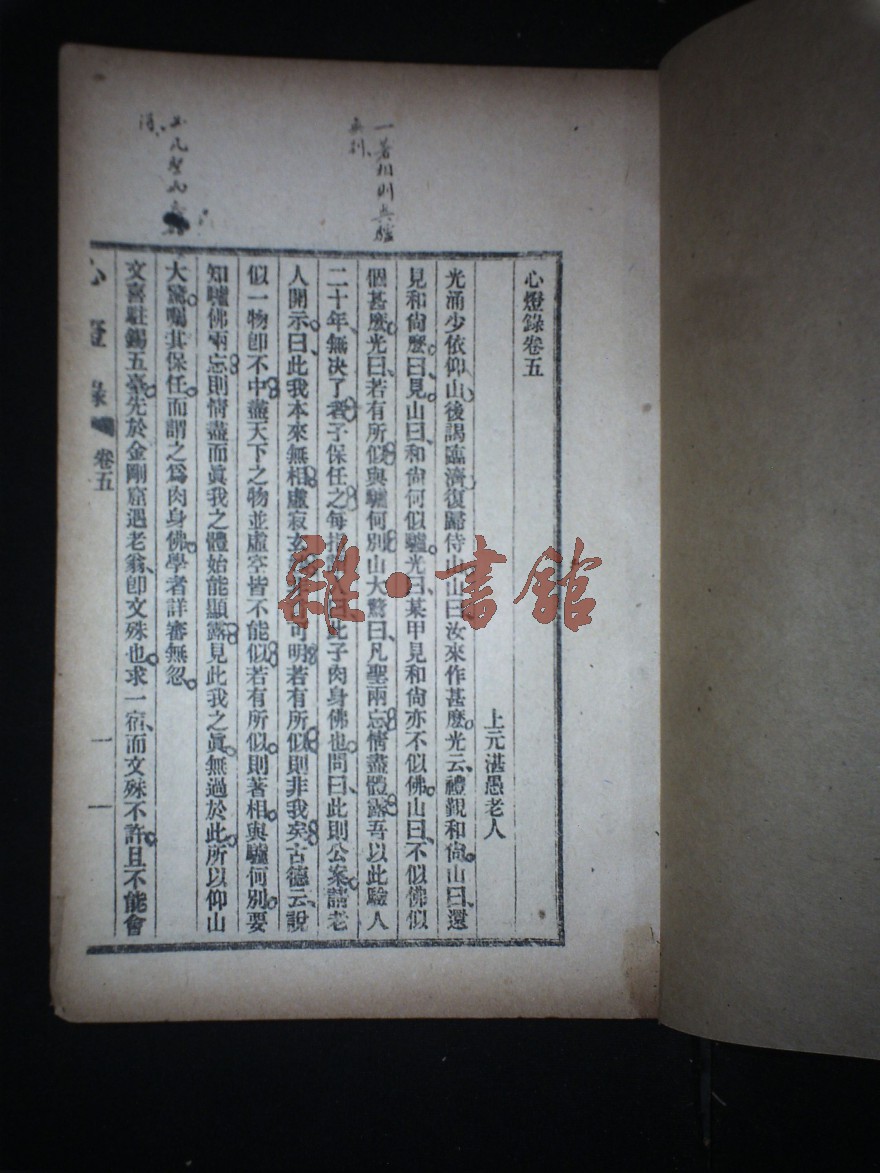 心燈錄卷五
上元湛愚老人
光涌少依仰山、後謁臨濟、復歸侍山、山曰、汝來作甚麼。光云、禮覲和尙。山曰、還
見和尙麼。曰、見。山曰、和尙何似驢。光曰、某甲見和尙亦不似佛。山曰、不似佛似
個甚麼。光曰、若有所似、與驢何別。山大驚曰、凡聖兩忘、情盡體露、吾以此驗人
二十年、無决了者、子保任之。每指謂人曰、此子肉身佛也。問曰、此則公案、請老
人開示。曰、此我本來無相、虛寂玄可明、若有所似、則非我矣。古德云、說
似一物卽不中、盡天下之物並虛空皆不能似、若有所似、則著相、與驢何別。要
知驢佛兩忘、則情盡而眞我之體始能顯露、見此我之眞、無過於此。所以仰山
大驚、囑其保任、而謂之爲肉身佛。學者詳審無忽。
文喜駐錫五臺、先於金剛窟遇老翁、卽文殊也。求一宿、而文殊不許、且不能會
心燈錄 卷五 一一
一著相則與驢
無別
凡聖
雜·書館